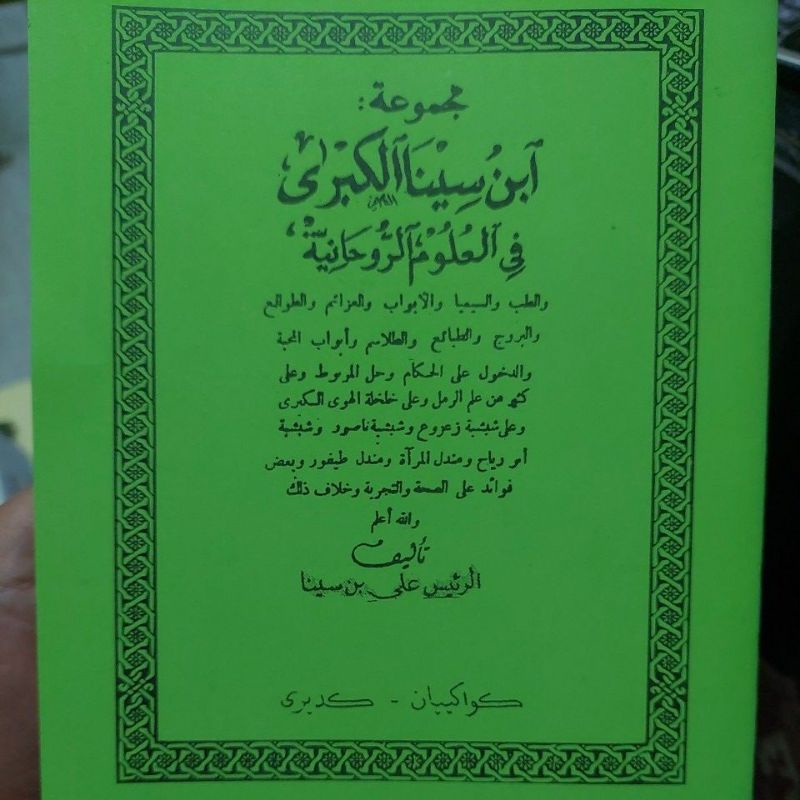 مجموعة:
ٱبنُ سِيْنَا ٱلكبْرىٰ
في ٱلعُلُوْمِ ٱلرُّوحَانِيَّة،
والطب والسيميا والأبواب والعزائم والطوالع
والبروج والطبائع والطلاسم وأبواب المحبة
والدخول على الحكام وحل المربوط وعلى
كثير من علم الرمل وعلى خلخلة الهوى الكبرى
وعلى شبشبة زعزوع وشبشبة ناصور وشبشبة
أبو رياح ومندل المرآة ومندل طيفور وبعض
فوائد على الصحة والتجربة وخلاف ذلك
والله أعلم
تأليف
الرئيس علي بن سينا
كواكيبان - كديرى